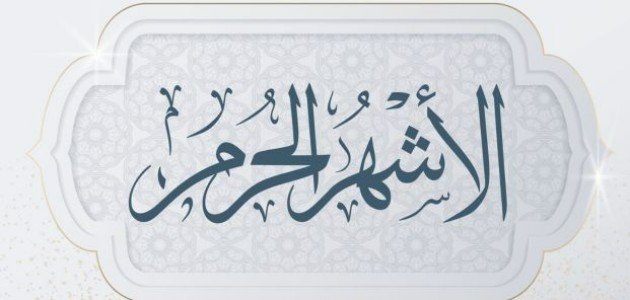 الأشهُر الحُرُم